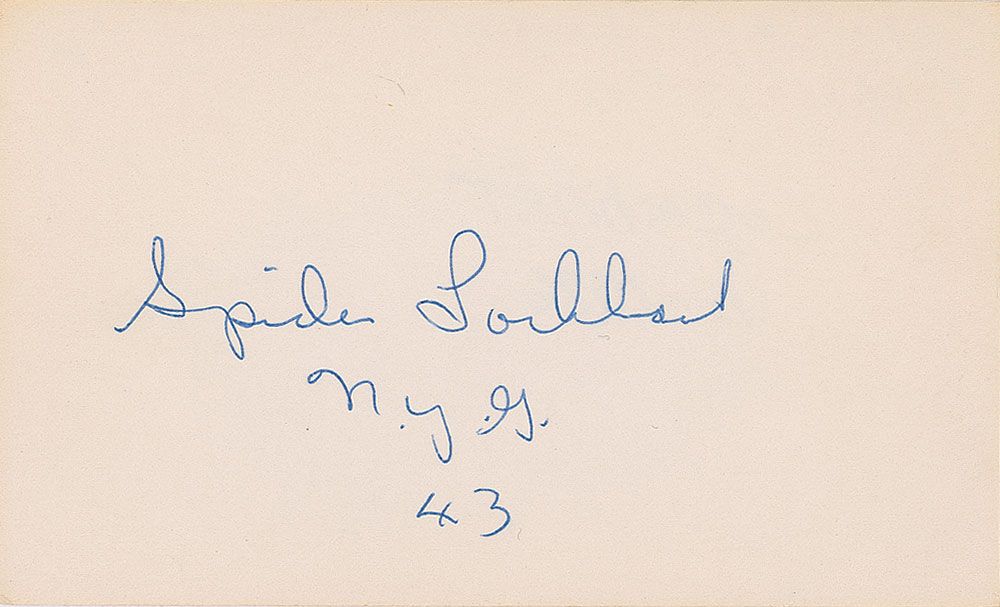 Spider Lockhart
N.Y.G.
43